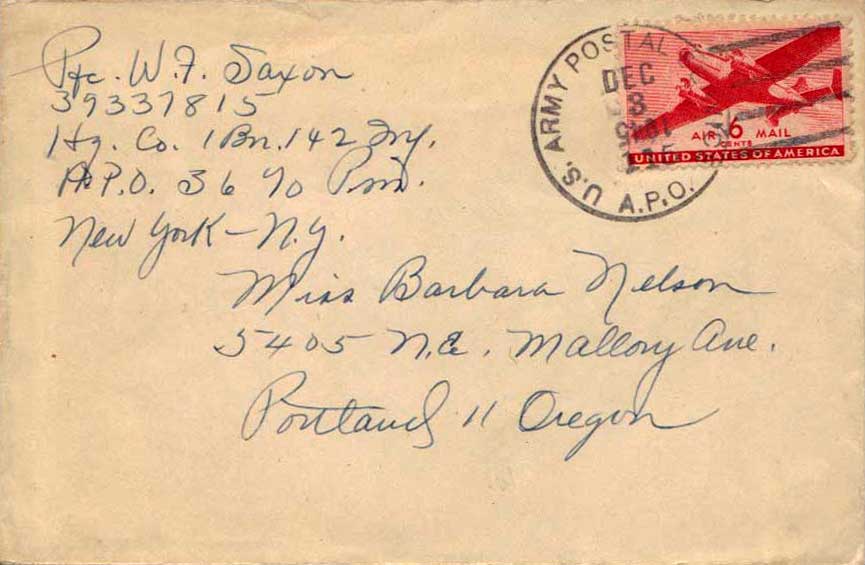 Pfc. W. F. Saxon
39337815
Hq. Co. 1 Bn. 142 Inf.
A.P.O. 36 % P.M.
New York - N.Y.
U.S. ARMY POSTAL
A.P.O.
DEC
AIR 6 MAIL
CENTS
UNITED STATES OF AMERICA
Miss Barbara Nelson
5405 N.E. Mallory Ave.
Portland 11 Oregon